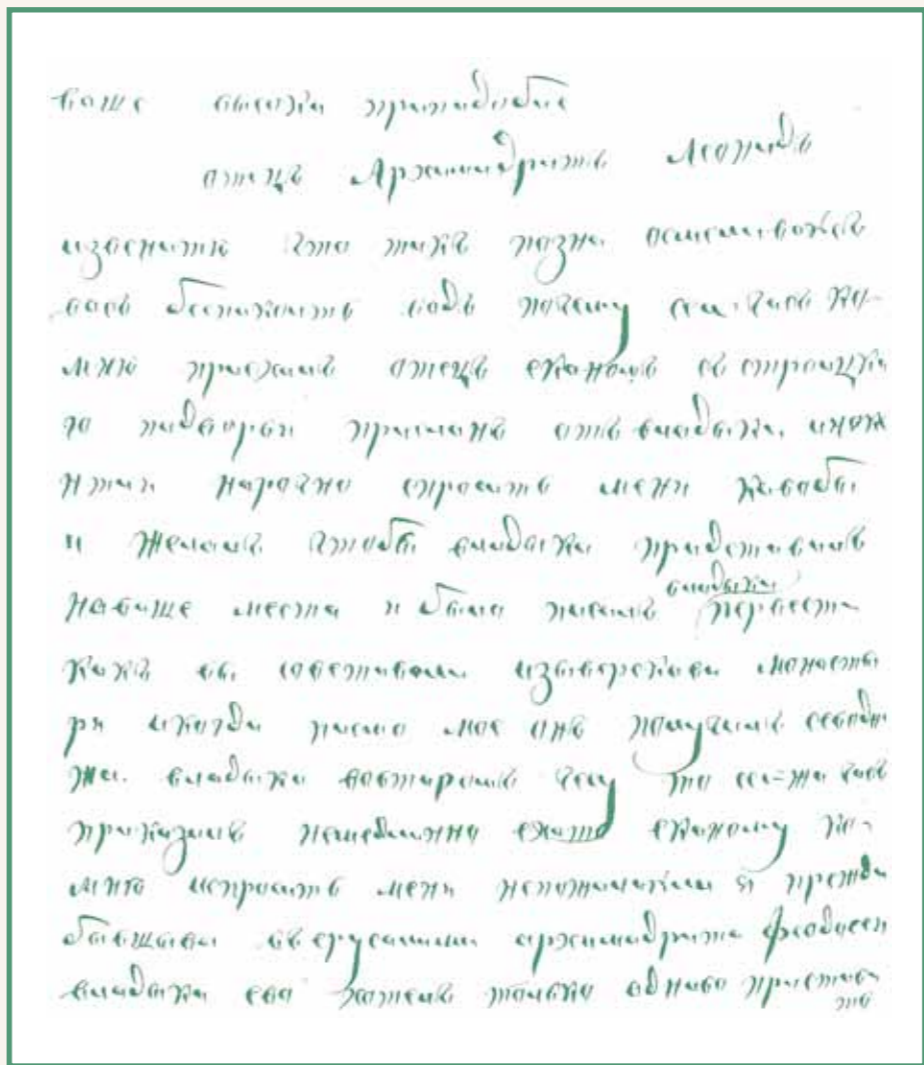 ваше высоки препадобие
отецъ Архимадритъ Леонидъ
что такъ позна осмеливоюсь
васъ безпокоить водъ почему сеи-часъ ко-
мню приехалъ отецъ еканомъ съ строицка
го падворья присланъ отъ владыки
нарочно спросить меня кавобы
я желалъ чтобы владыка представилъ
наваше место я было писалъ владыки перевести
какъ вы советовали монасты
ря икогда писмо мое онъ получилъ севодни
же владыка вовтаромъ часу то се=жа часъ
приказалъ немедленна ехать еканому ко-
мню испросить меня непожелаюли я прежде
бывшева въерусалиме архимадрита Феодосея
владыка ево хотелъ только однаво